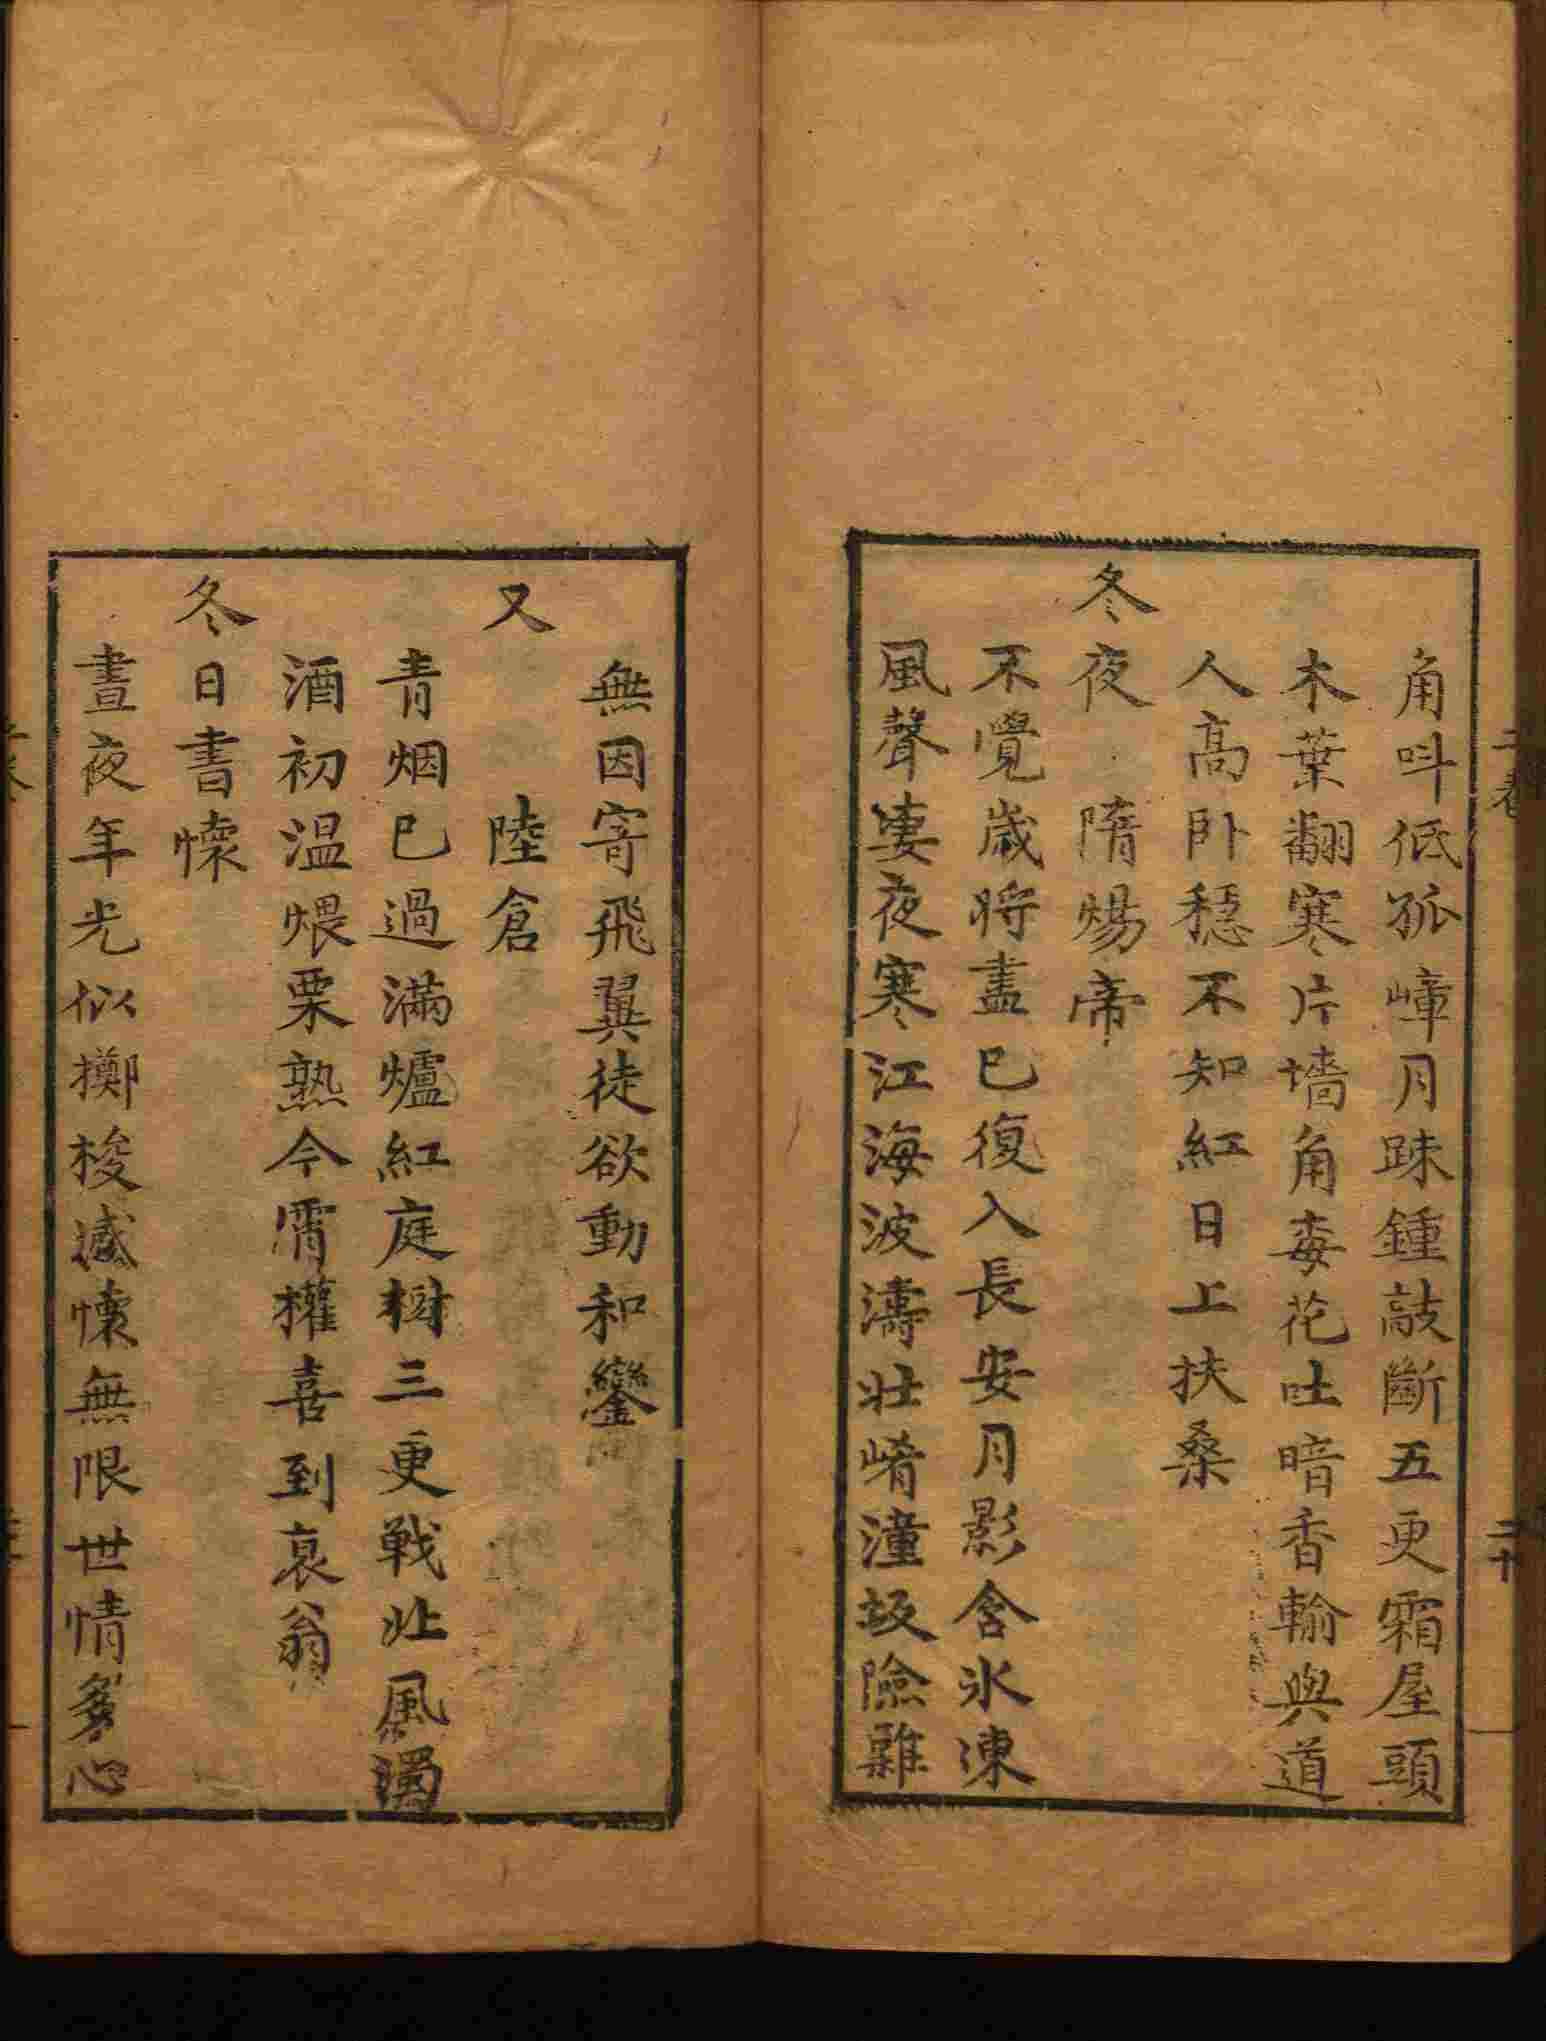 角呌低孤嶂月踈鍾敲斷五更霜屋頭
木葉翻寒片墻角毎花吐暗香輸與道
人高卧穩不知紅日上扶桑
冬夜 隋煬帝
不覺歲將盡已復入長安月影含氷凍
風聲凄夜寒江海波濤壯崤潼坂險難
無因寄飛翼徒欲動和鑾
又 陸倉
青烟已過滿爐紅庭樹三更戰北風濁
酒初温煨栗熟今宵權喜到衰翁
冬日書懷
晝夜年光似擲梭感懷無限世情多心
二卷
二十